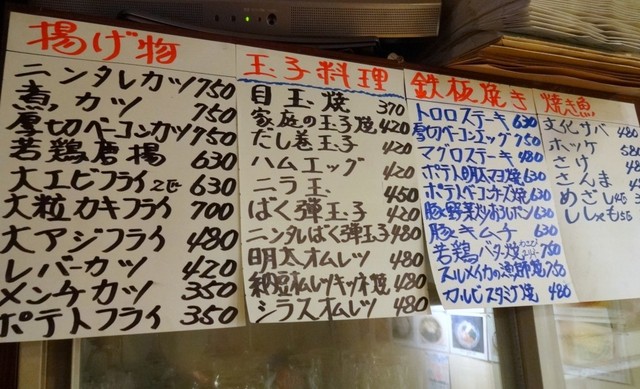 揚げ物
ニンタレカツ 750
煮カツ 750
厚切ベーコンカツ 750
若鶏唐揚 630
大エビフライ 2匹 630
大粒カキフライ 700
大アジフライ 480
レバーカツ 420
メンチカツ 350
ポテトフライ 350
玉子料理
目玉焼 370
家庭の玉子焼 420
だし巻玉子 420
ハムエッグ 420
ニラ玉 450
ばく弾玉子 420
ニンタレばく弾玉子 480
明太オムレツ 480
納豆オムレツキツネ焼 480
シラスオムレツ 480
鉄板焼き
トロロステーキ 630
厚切ベーコンエッグ 750
マグロステーキ 480
ポテト明太マヨ焼 630
ポテトベーコンチーズ焼 630
豚野菜炒め 630
豚キムチ 630
若鶏バター焼 750
スルメイカの漁師焼 750
カルビスタミナ焼 480
焼き魚
文化サバ
ホッケ
さけ
さんま
めざし
ししゃも